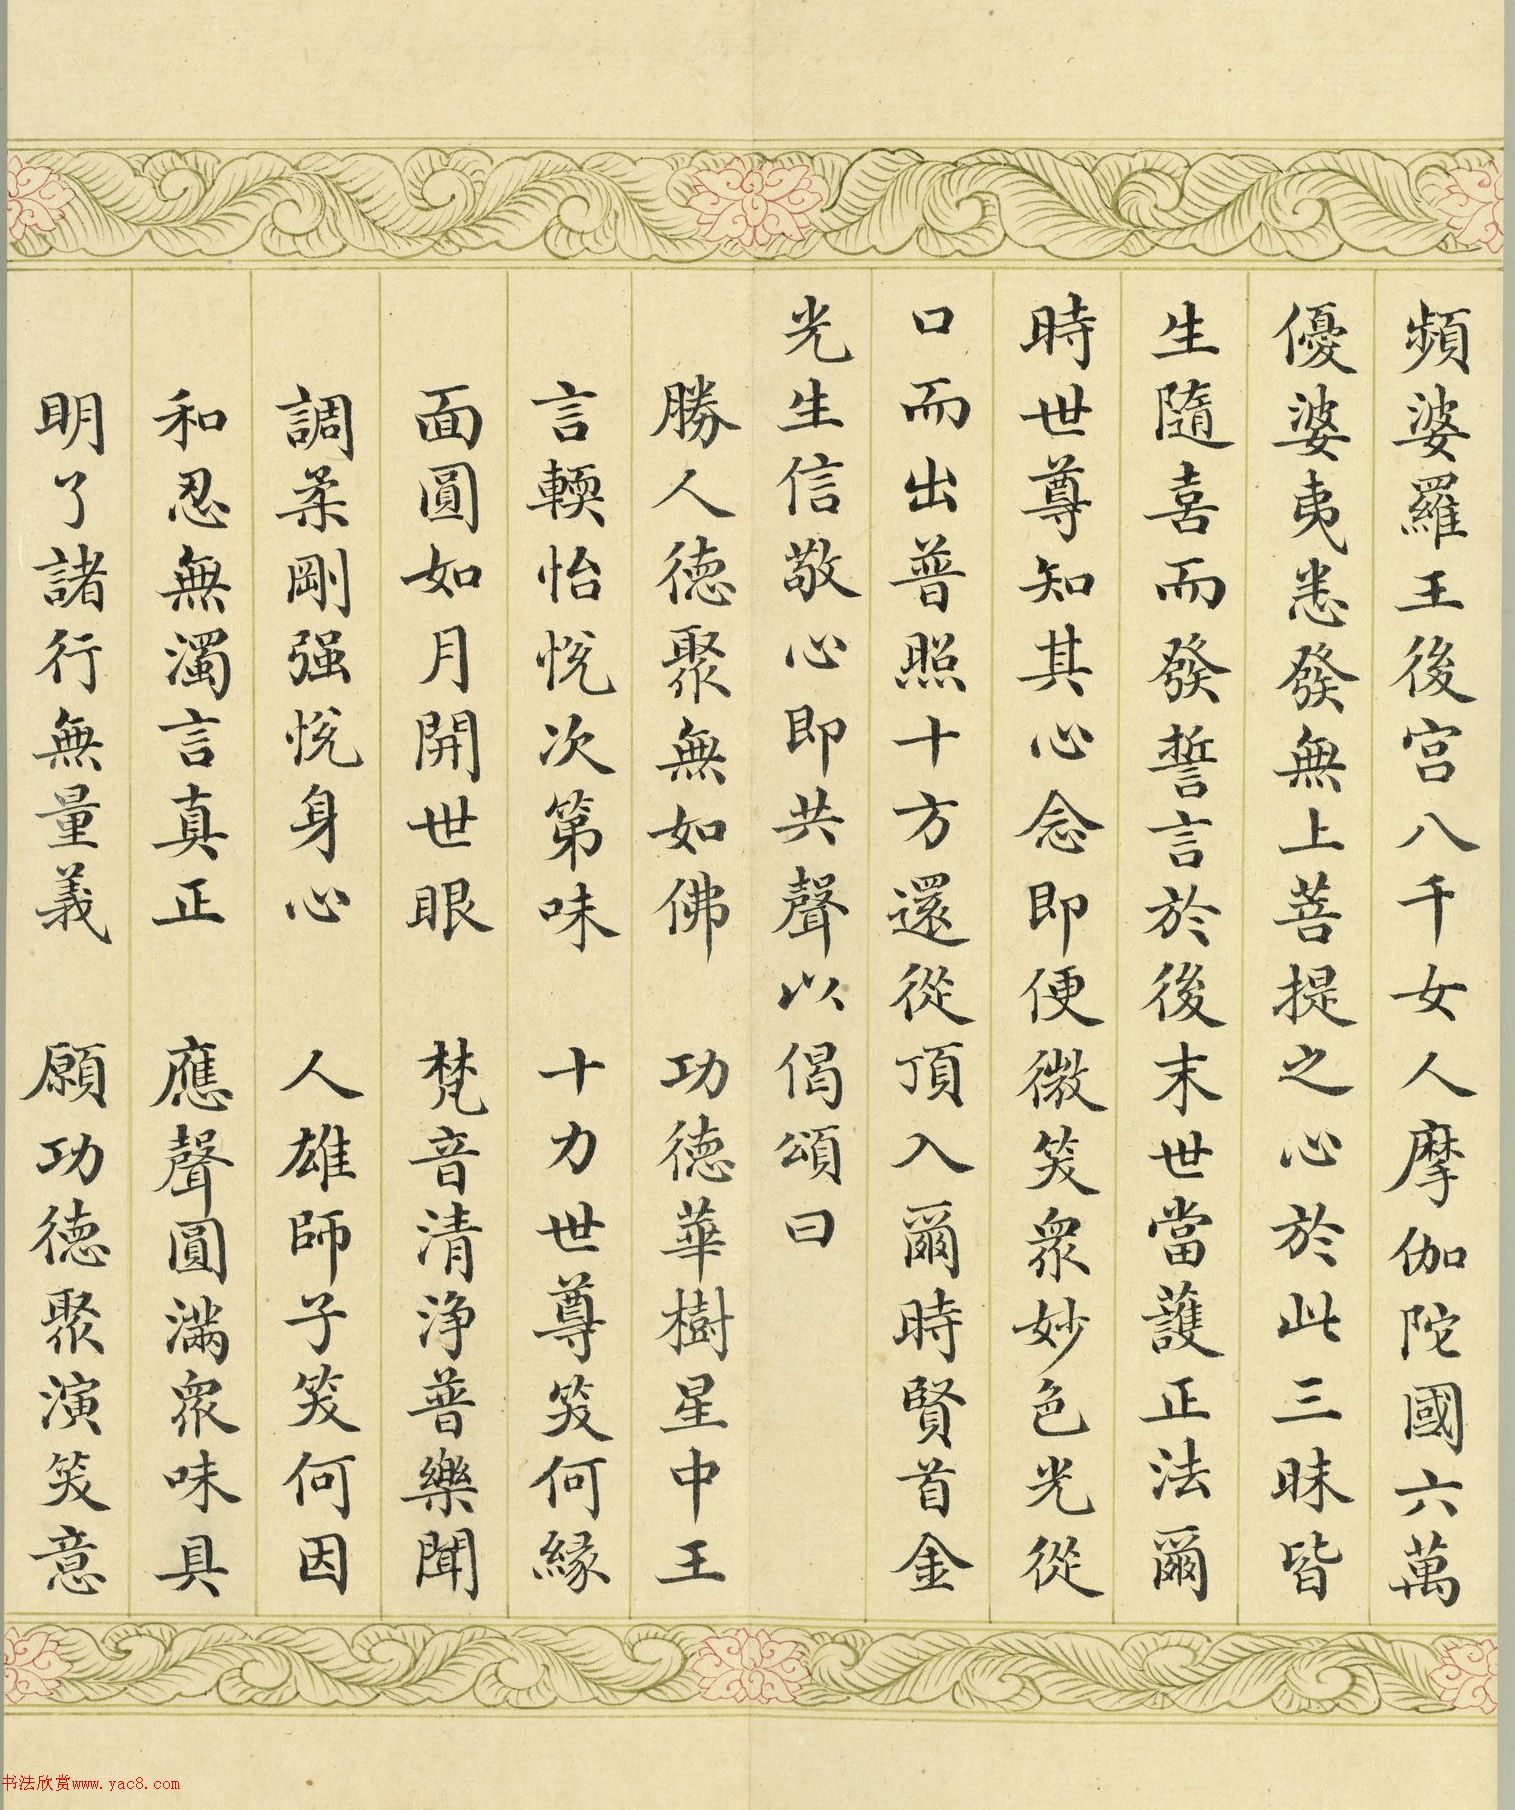 頻婆羅王後宮八千女人摩伽陀國六萬
優婆夷悉發無上菩提之心於此三昧皆
生隨喜而發誓言於後末世當護正法爾
時世尊知其心念即便微笑眾妙色光從
口而出普照十方還從頂入爾時賢首金
光生信敬心即共聲以偈頌曰
勝人德聚無如佛 功德華樹星中王
言輭怡悅次第味 十力世尊笑何緣
面圓如月開世眼 梵音清淨普樂聞
調柔剛强悅身心 人雄師子笑何因
和忍無濁言真正 應聲圓滿眾味具
明了諸行無量義 願功德聚演笑意
书法欣赏www.yac8.com